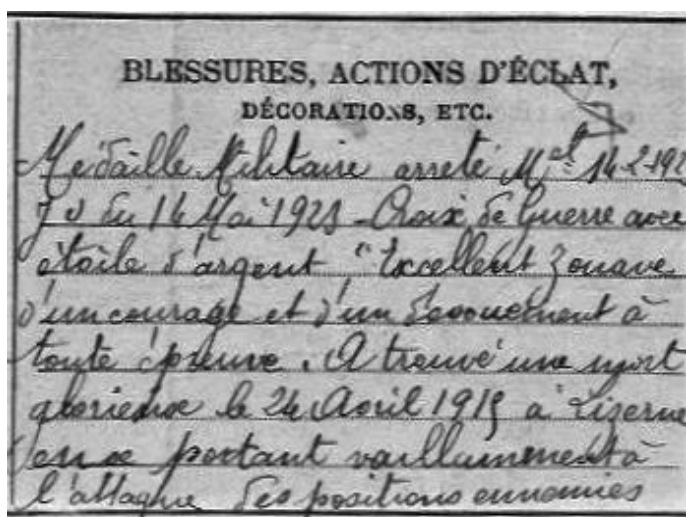 BLESSURES, ACTIONS D'ÉCLAT,
DÉCORATIONS, ETC.
Médaille Militaire arrêté Mel 14-2-192
J O du 14 Mai 1921 - Croix de Guerre avec
étoile d'argent "Excellent Zouave
d'un courage et d'un dévouement à
toute épreuve. A trouvé une mort
glorieuse le 24 Avril 1915 à Lizerne
en se portant vaillamment à
l'attaque des positions ennemies